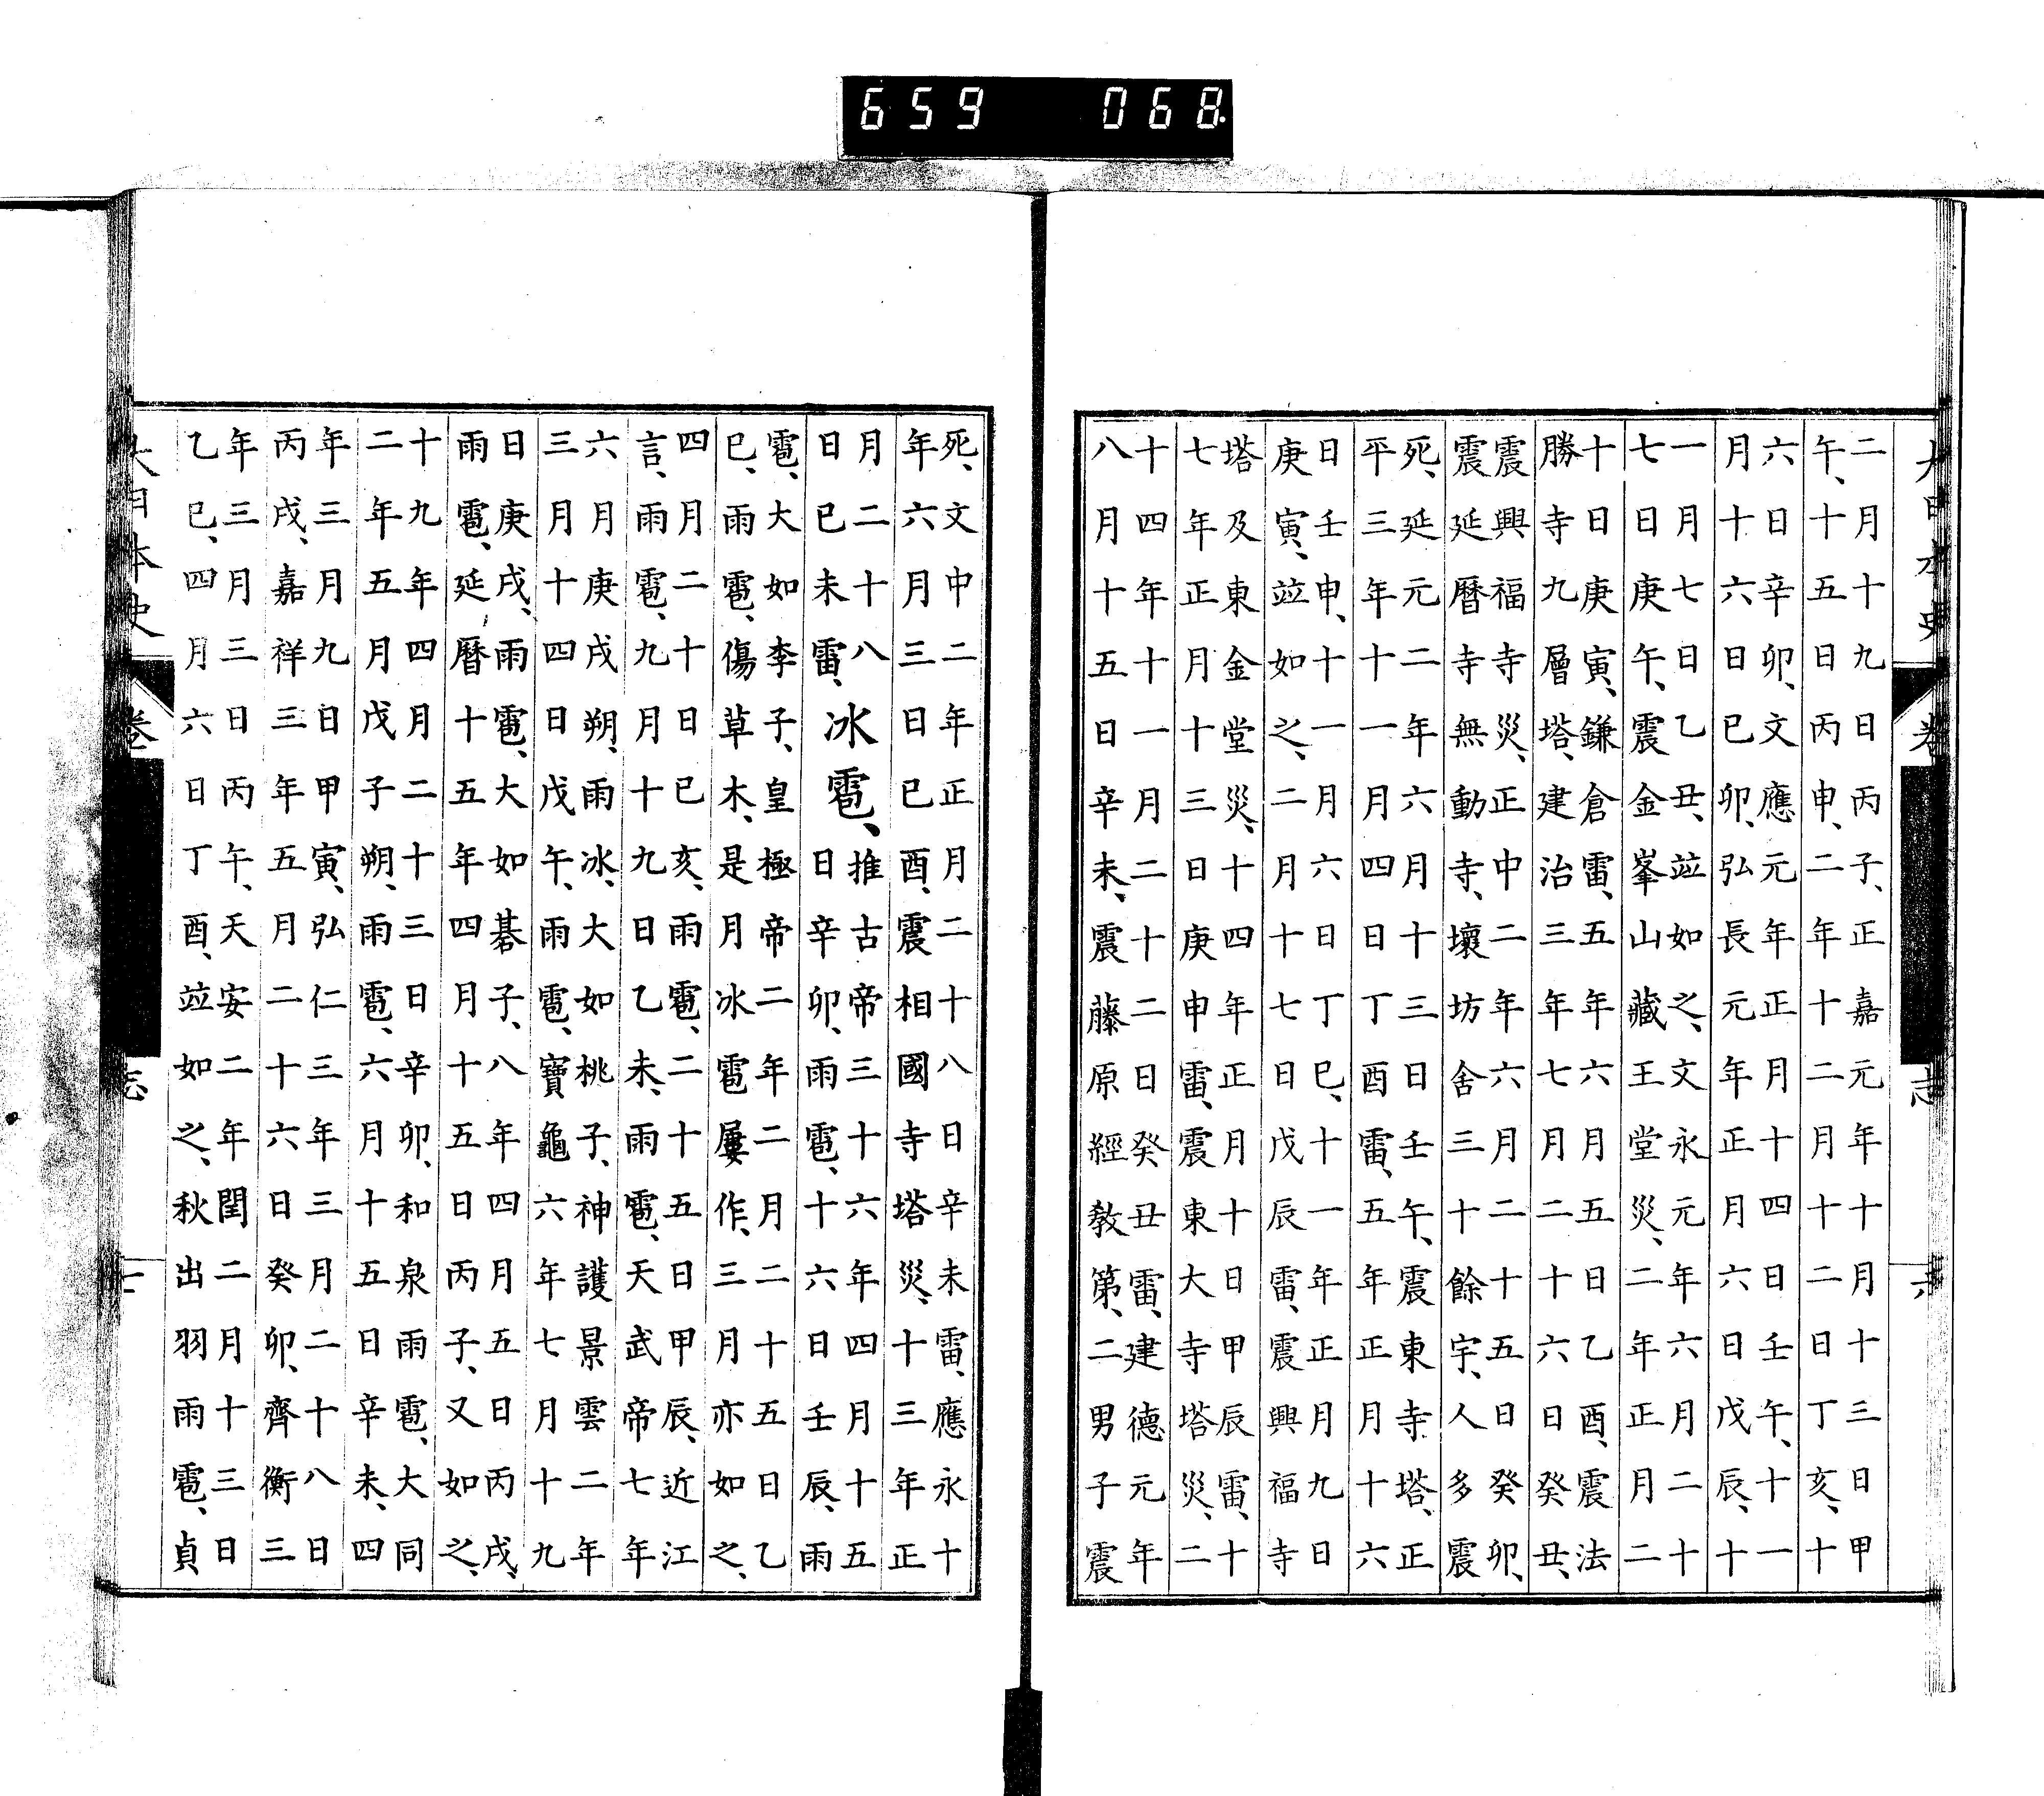 659 068
大日本史 卷 志 六
二月十九日丙子、正嘉元年十月十三日甲
午、十五日丙申、二年十二月十二日丁亥、十
六日辛卯、文應元年正月十四日壬午、十一
月十六日己卯、弘長元年正月六日戊辰、十
一月七日乙丑、竝如之、文永元年六月二十
七日庚午、震金峯山藏王堂災、二年正月二
十日庚寅、鎌倉雷、五年六月五日乙酉、震法
勝寺九層塔、建治三年七月二十六日癸丑、
震興福寺災、正中二年六月二十五日癸卯、
震延曆寺無動寺、壞坊舍三十餘宇、人多震
死、延元二年六月十三日壬午、震東寺塔、正
平三年十一月四日丁酉雷、五年正月十六
日壬申、十一月六日丁巳、十一年正月九日
庚寅、竝如之、二月十七日戊辰雷、震興福寺
塔及東金堂災、十四年正月十日甲辰雷、十
七年正月十三日庚申雷、震東大寺塔災、二
十四年十一月二十二日癸丑雷、建德元年
八月十五日辛未、震藤原經敎第、二男子震
死、文中二年正月二十八日辛未雷、應永十
年六月三日己酉、震相國寺塔災、十三年正
月二十八
日己未雷、
冰雹、
推古帝三十六年四月十五
日辛卯、雨雹、十六日壬辰、雨
雹、大如李子、皇極帝二年二月二十五日乙
巳、雨雹、傷草木、是月冰雹屢作、三月亦如之、
四月二十日己亥、雨雹、二十五日甲辰、近江
言、雨雹、九月十九日乙未、雨雹、天武帝七年
六月庚戌朔、雨冰、大如桃子、神護景雲二年
三月十四日戊午、雨雹、寶龜六年七月十九
日庚戌、雨雹、大如碁子、八年四月五日丙戌、
雨雹、延曆十五年四月十五日丙子、又如之、
十九年四月二十三日辛卯、和泉雨雹、大同
二年五月戊子朔、雨雹、六月十五日辛未、四
年三月九日甲寅、弘仁三年三月二十八日
丙戌、嘉祥三年五月二十六日癸卯、齊衡三
年三月三日丙午、天安二年閏二月十三日
乙巳、四月六日丁酉、竝如之、秋出羽雨雹、貞
大日本史 卷 志